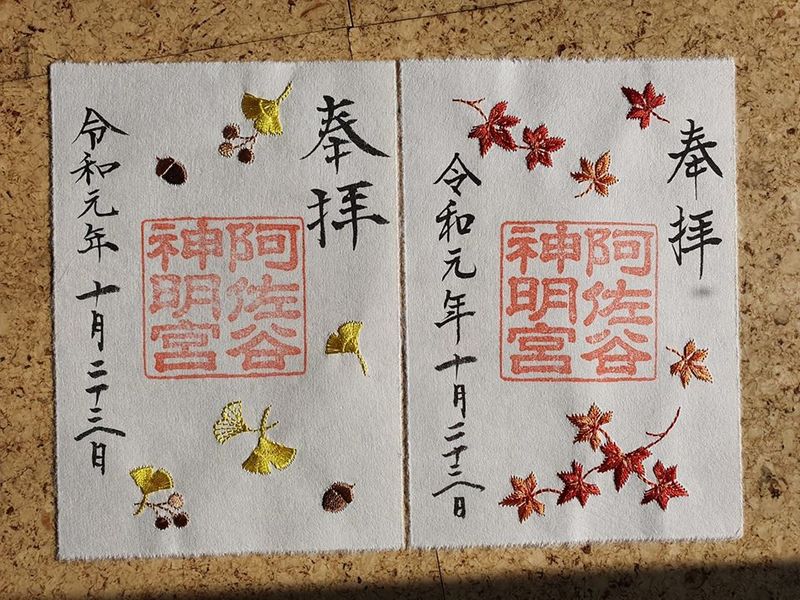 奉拝
阿佐谷
神明宮
令和元年十月二十三日
奉拝
阿佐谷
神明宮
令和元年十月二十三日